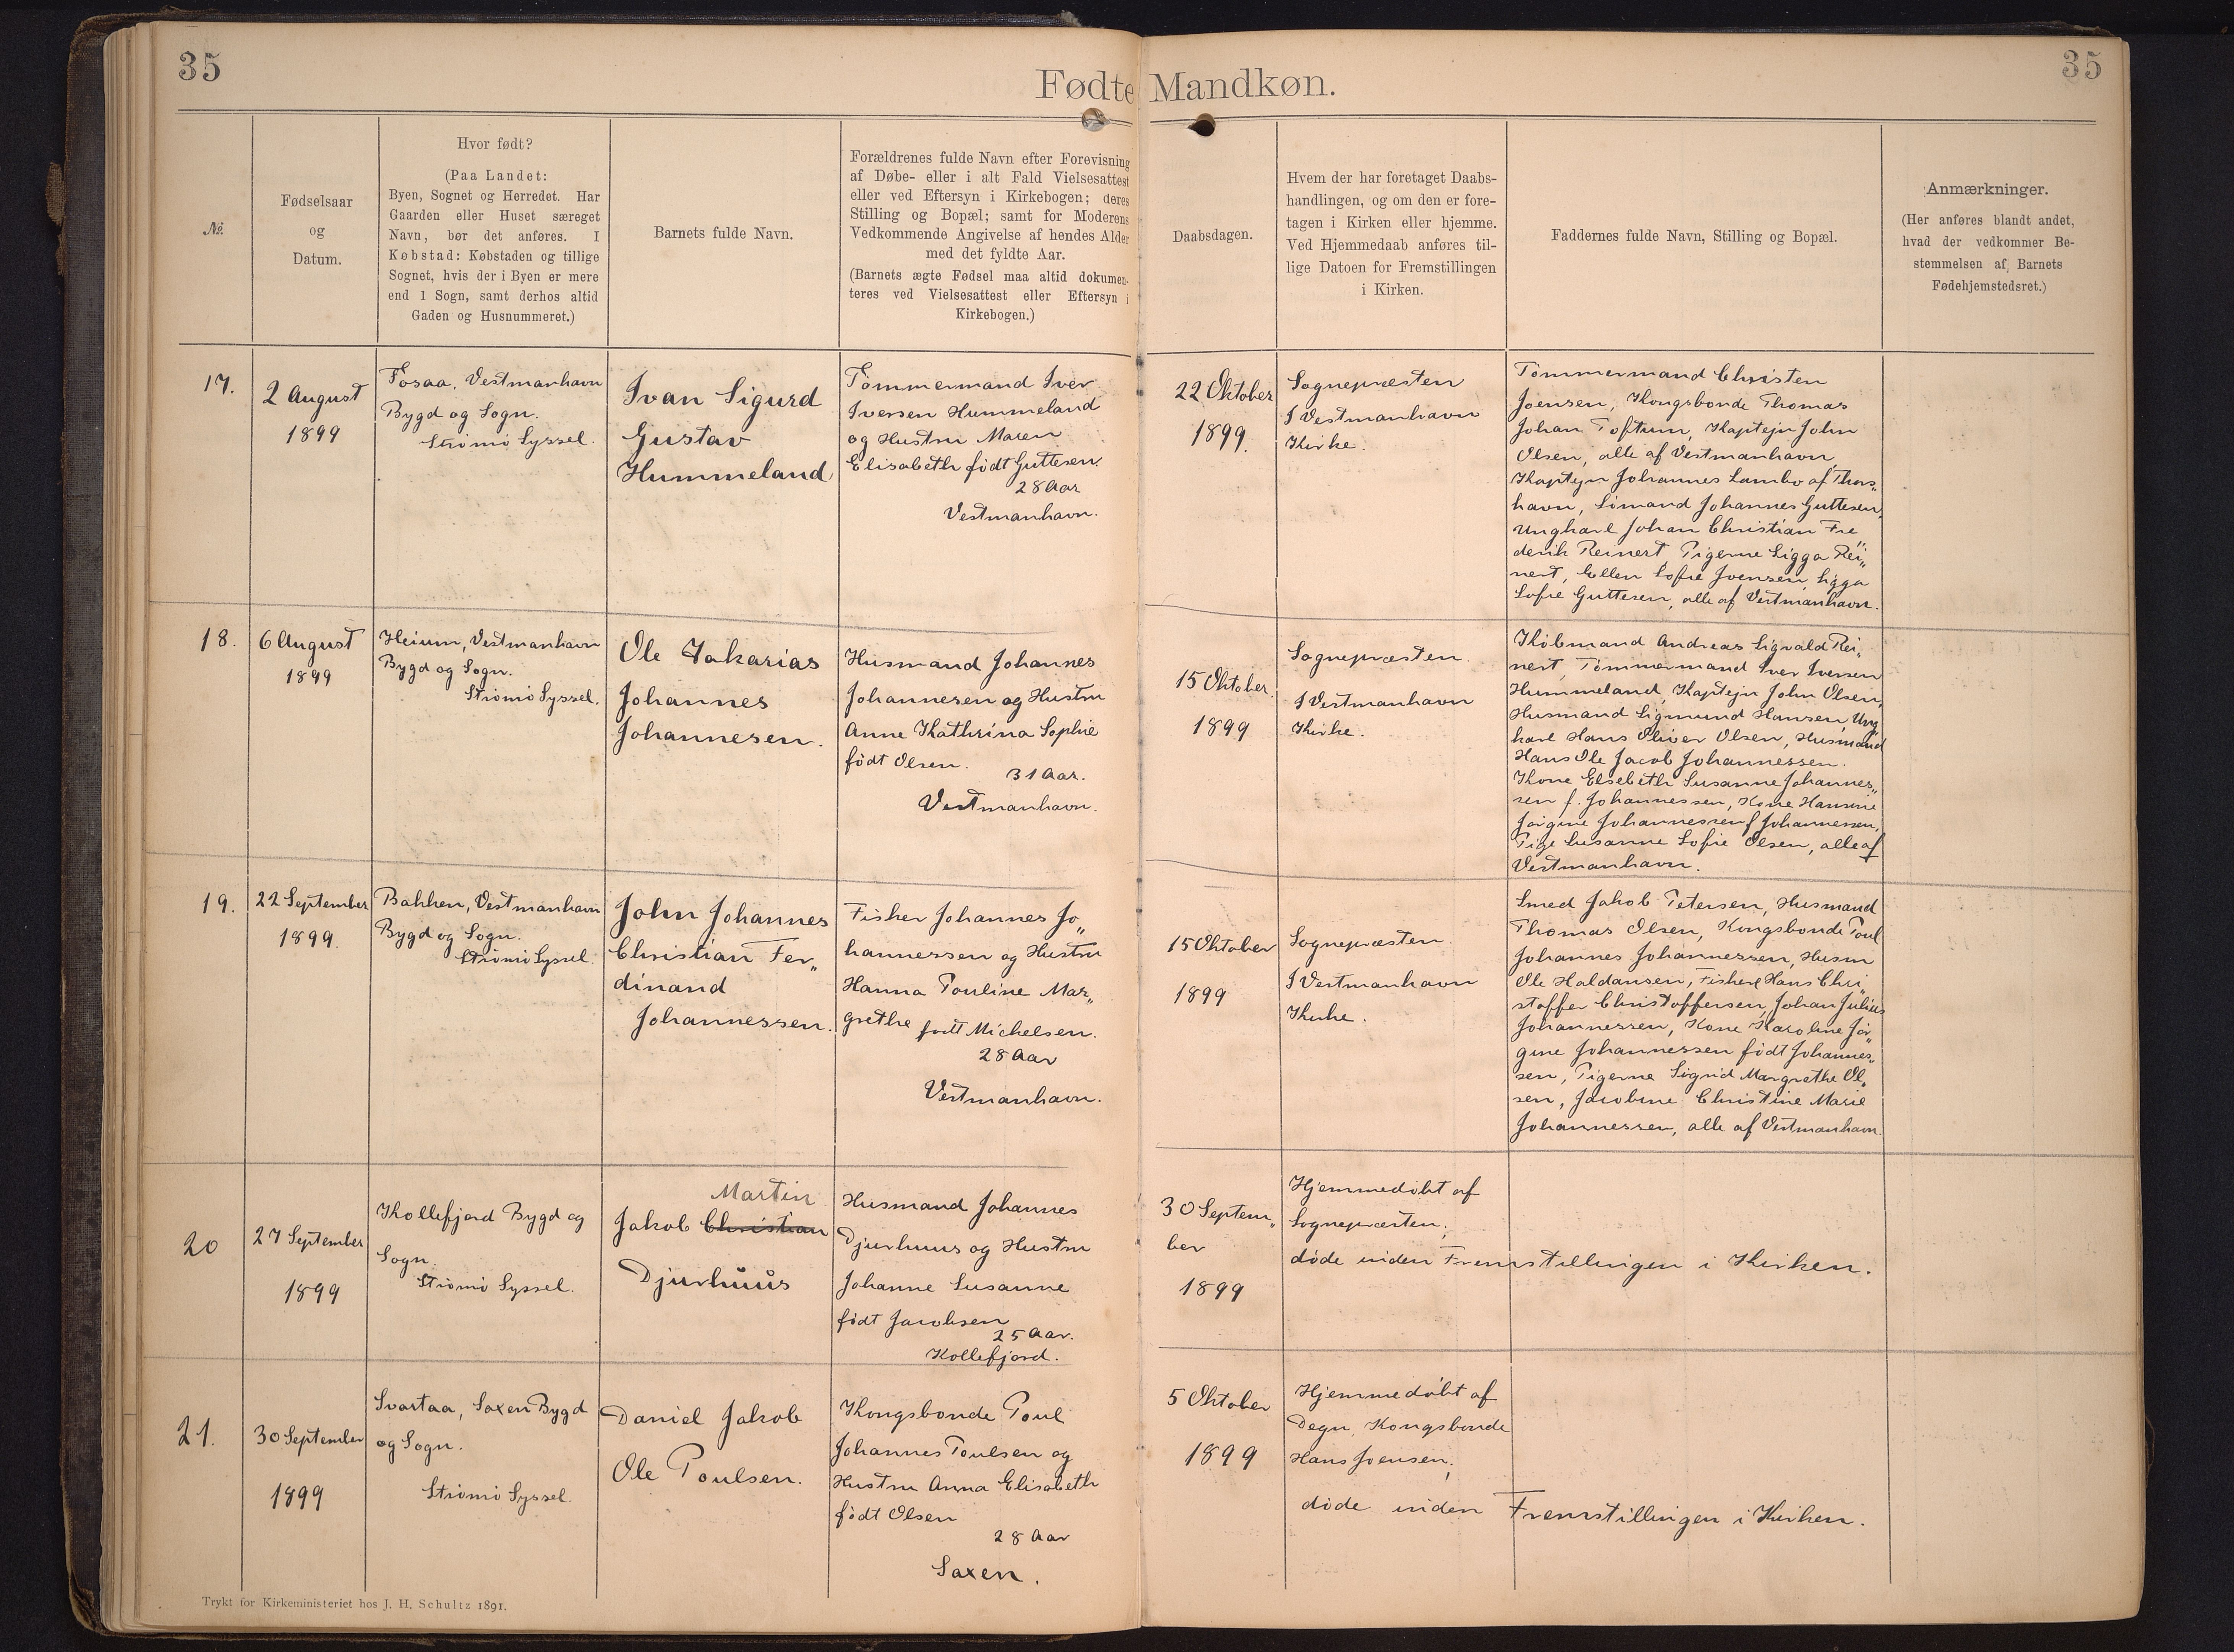 35
35
Fødte Mandkøn.
№
Fødselsaar
og
Datum.
Hvor født?
(Paa Landet:
Byen, Sognet og Herredet. Har
Gaarden eller Huset særeget
Navn, bør det anføres. I
Købstad: Købstaden og tillige
Sognet, hvis der i Byen er mere
end 1 Sogn, samt derhos altid
Gaden og Husnummeret.)
Barnets fulde Navn.
Forældrenes fulde Navn efter Forevisning
af Døbe- eller i alt Fald Vielsesattest
eller ved Eftersyn i Kirkebogen; deres
Stilling og Bopæl; samt for Moderens
Vedkommende Angivelse af hendes Alder
med det fyldte Aar.
(Barnets ægte Fødsel maa altid dokumen-
teres ved Vielsesattest eller Eftersyn i
Kirkebogen.)
Daabsdagen.
Hvem der har foretaget Daabs-
handlingen, og om den er fore-
tagen i Kirken eller hjemme.
Ved Hjemmedaab anføres til-
lige Datoen for Fremstillingen
i Kirken.
Faddernes fulde Navn, Stilling og Bopæl.
Anmærkninger.
(Her anføres blandt andet,
hvad der vedkommer Be-
stemmelsen af Barnets
Fødehjemstedsret.)
17.
2 August
1899
Fosaa, Vestmanhavn
Bygd og Sogn.
Strømø Syssel.
Ivan Sigurd
Gustav
Hummeland
Tømmermand Iver
Iversen Hummeland
og Hustru Maren
Elisabeth født Guttesen.
28 Aar
Vestmanhavn.
22 Oktober
1899.
Sognepræsten
I Vestmanhavn
Kirke.
Tømmermand Christen
Joensen, Kongsbonde Thomas
Johan Toftum, Kaptejn John
Olsen, alle af Vestmanhavn
Kaptejn Johannes Lambo af Thors„
havn, Sømand Johannes Guttesen,
Ungkarl Johan Christian Fre„
derik Reinert Pigerne Sigga Rei„
nert, Ellen Sofie Joensen, Sigga
Sofie Guttesen, alle af Vestmanhavn.
18.
6 August
1899
Heium, Vestmanhavn
Bygd og Sogn.
Strømø Syssel.
Ole Zakarias
Johannes
Johannesen.
Husmand Johannes
Johannesen og Hustru
Anne Kathrina Sophie
født Olsen.
31 Aar.
Vestmanhavn.
15 Oktober.
1899
Sognepræsten.
I Vestmanhavn
Kirke.
Købmand Andreas Sigvald Rei„
nert, Tømmermand Iver Iversen
Hummeland, Kaptejn John Olsen,
Husmand Sigmund Hansen, Ung„
karl Hans Oliver Olsen, Husmand
Hans Ole Jacob Johannessen.
Kone Elsebeth Susanne Johannes„
sen f. Johannessen, Kone Hansine
Jørgine Johannessen f Johannessen,
Pige Susanne Sofie Olsen, alle af
Vestmanhavn.
19.
22 September
1899.
Bakken, Vestmanhavn
Bygd og Sogn.
Strømø Syssel.
John Johannes
Christian Fer„
dinand
Johannessen.
Fisker Johannes Jo„
hannessen og Hustru
Hanna Pouline Mar„
grethe født Michelsen.
28 Aar
Vestmanhavn.
15 Oktober
1899
Sognepræsten.
I Vestmanhavn
Kirke.
Smed Jakob Petersen, Husmand
Thomas Olsen, Kongsbonde Poul
Johannes Johannessen, Husm
Ole Haldansen, Fisker Hans Chri„
stoffer Christoffersen, Johan Julius
Johannessen, Kone Karoline Jør„
gine Johannessen født Johannes„
sen, Pigerne Sigrid Margrethe Ol„
sen, Jacobine Christine Marie
Johannessen, alle af Vestmanhavn.
20
27 September
1899
Kollefjord Bygd og
Sogn.
Strømø Syssel.
Martin
Jakob Christian
Djurhuus
Husmand Johannes
Djurhuus og Hustru
Johanne Susanne
født Jacobsen
25 Aar.
Kollefjord.
30 Septem„
ber
1899
Hjemmedøbt af
Sognepræsten;
døde inden Fremstillingen i Kirken.
21.
30 September
1899
Svartaa, Saxen Bygd
og Sogn.
Strømø Syssel.
Daniel Jakob
Ole Poulsen.
Kongsbonde Poul
Johannes Poulsen og
Hustru Anna Elisabeth
født Olsen
28 Aar
Saxen.
5 Oktober
1899
Hjemmedøbt af
Degn, Kongsbonde
Hans Joensen;
døde inden Fremstillingen i Kirken.
Trykt for Kirkeministeriet hos J. H. Schultz 1891.